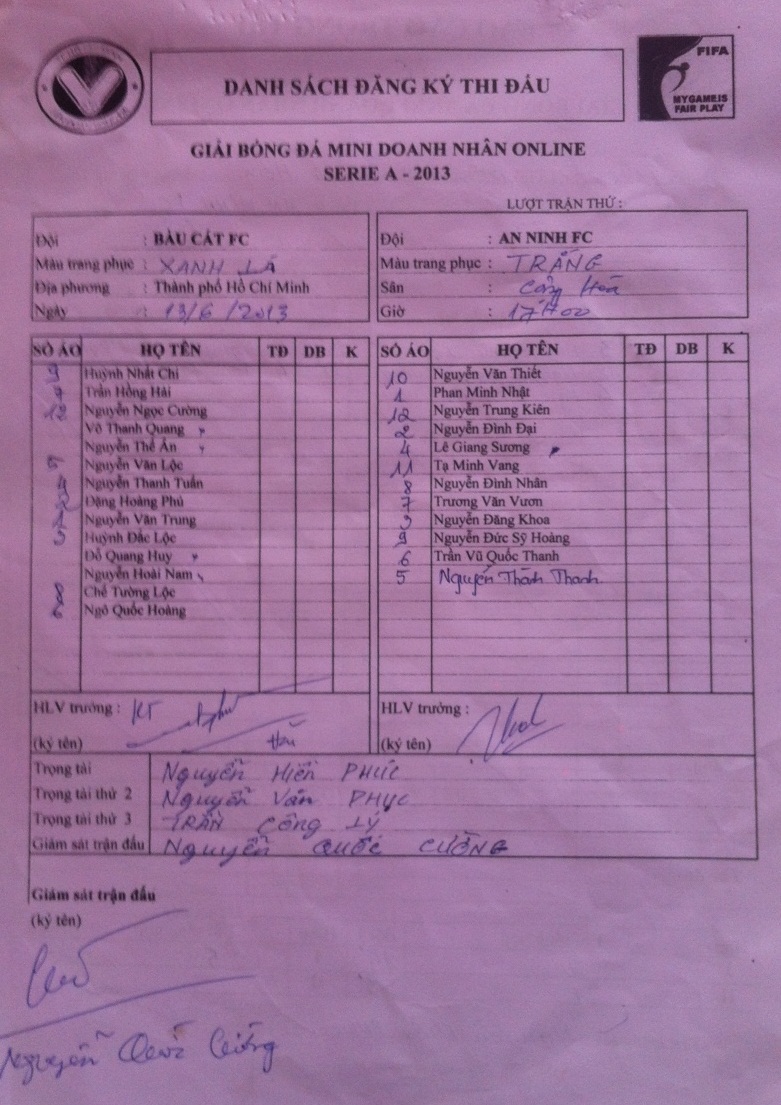 DANH SÁCH ĐĂNG KÝ THI ĐẤU
FIFA
MY GAME IS
FAIR PLAY
GIẢI BÓNG ĐÁ MINI DOANH NHÂN ONLINE
SERIE A - 2013
LƯỢT TRẬN THỨ :
Đội : BÀU CÁT FC
Màu trang phục : XANH LÁ
Địa phương : Thành phố Hồ Chí Minh
Ngày : 13/6/2013
Đội : AN NINH FC
Màu trang phục : TRẮNG
Sân : Cộng Hoà
Giờ : 17H00
SỐ ÁO HỌ TÊN TĐ DB K
9 Huỳnh Nhất Chi
7 Trần Hồng Hải
12 Nguyễn Ngọc Cường
Võ Thanh Quang
Nguyễn Thế Ân
Nguyễn Văn Lộc
Nguyễn Thanh Tuấn
Đặng Hoàng Phú
Nguyễn Văn Trung
Huỳnh Đắc Lộc
Đỗ Quang Huy
Nguyễn Hoài Nam
8 Chế Tường Lộc
Ngô Quốc Hoàng
HLV trưởng : KT
(ký tên)
SỐ ÁO HỌ TÊN TĐ DB K
10 Nguyễn Văn Thiết
1 Phan Minh Nhật
12 Nguyễn Trung Kiên
2 Nguyễn Đình Đại
4 Lê Giang Sương
11 Tạ Minh Vang
8 Nguyễn Đình Nhân
7 Trương Văn Vươn
3 Nguyễn Đăng Khoa
9 Nguyễn Đức Sỹ Hoàng
6 Trần Vũ Quốc Thanh
5 Nguyễn Thành Thanh
HLV trưởng :
(ký tên)
Trọng tài NGUYỄN HIỀN PHÚC
Trọng tài thứ 2 NGUYỄN VĂN PHỤC
Trọng tài thứ 3 TRẦN CÔNG LÝ
Giám sát trận đấu NGUYỄN QUỐC CƯỜNG
Giám sát trận đấu
(ký tên)
Nguyễn Quốc Cường